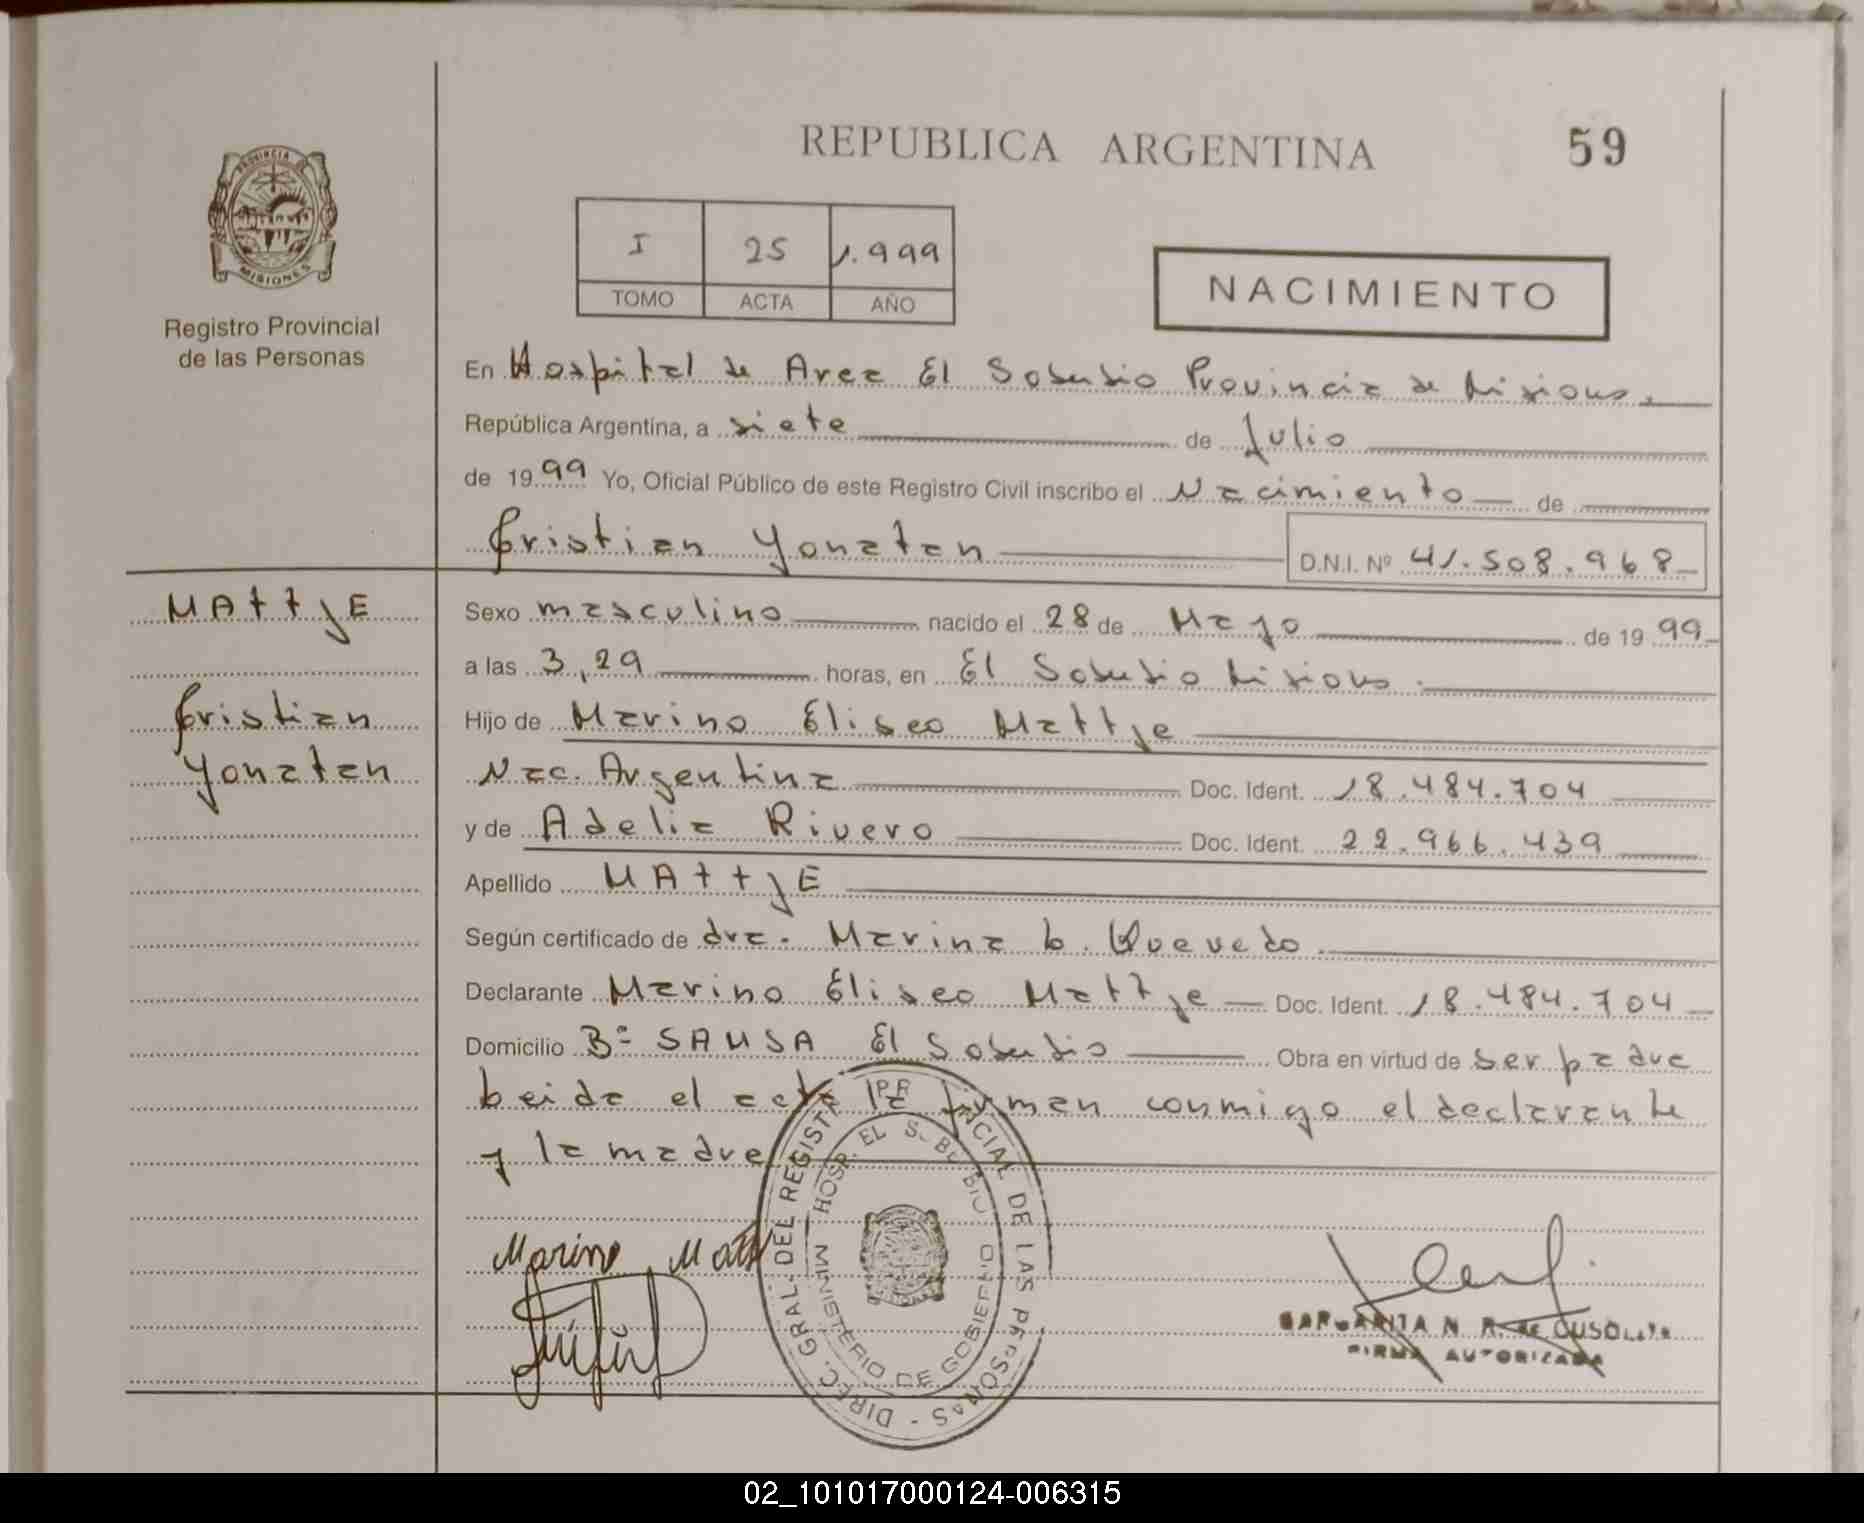 REPUBLICA ARGENTINA
59
PROVINCIA
MISIONES
Registro Provincial
de las Personas
I 25 1.999
TOMO ACTA AÑO
NACIMIENTO
En Hospital de Area El Soberbio Provincia de Misiones.
República Argentina, a siete de Julio
de 1999 Yo, Oficial Público de este Registro Civil inscribo el Nacimiento de
Cristian Yonatan D.N.I. Nº 41.508.968
MAttjE
Cristian
Yonatan
Sexo masculino nacido el 28 de Mayo de 1999
a las 3,29 horas, en El Soberbio Misiones.
Hijo de Marino Eliseo Mattje
Nac. Argentina Doc. Ident. 18.484.704
y de Adelia Rivero Doc. Ident. 22.966.439
Apellido MAttjE
Según certificado de dra. Marina L. Quevedo.
Declarante Marino Eliseo Mattje Doc. Ident. 18.484.704
Domicilio Bº SAMSA El Soberbio Obra en virtud de ser padre
Leida el acta la firman conmigo el declarante
y la madre
Marino Matt
DIREC. GRAL. DEL REGISTRO PROVINCIAL DE LAS PERSONAS
HOSP. EL SOBERBIO
MINISTERIO DE GOBIERNO
MARGARITA N. R. de
FIRMA AUTORIZADA
02_101017000124-006315